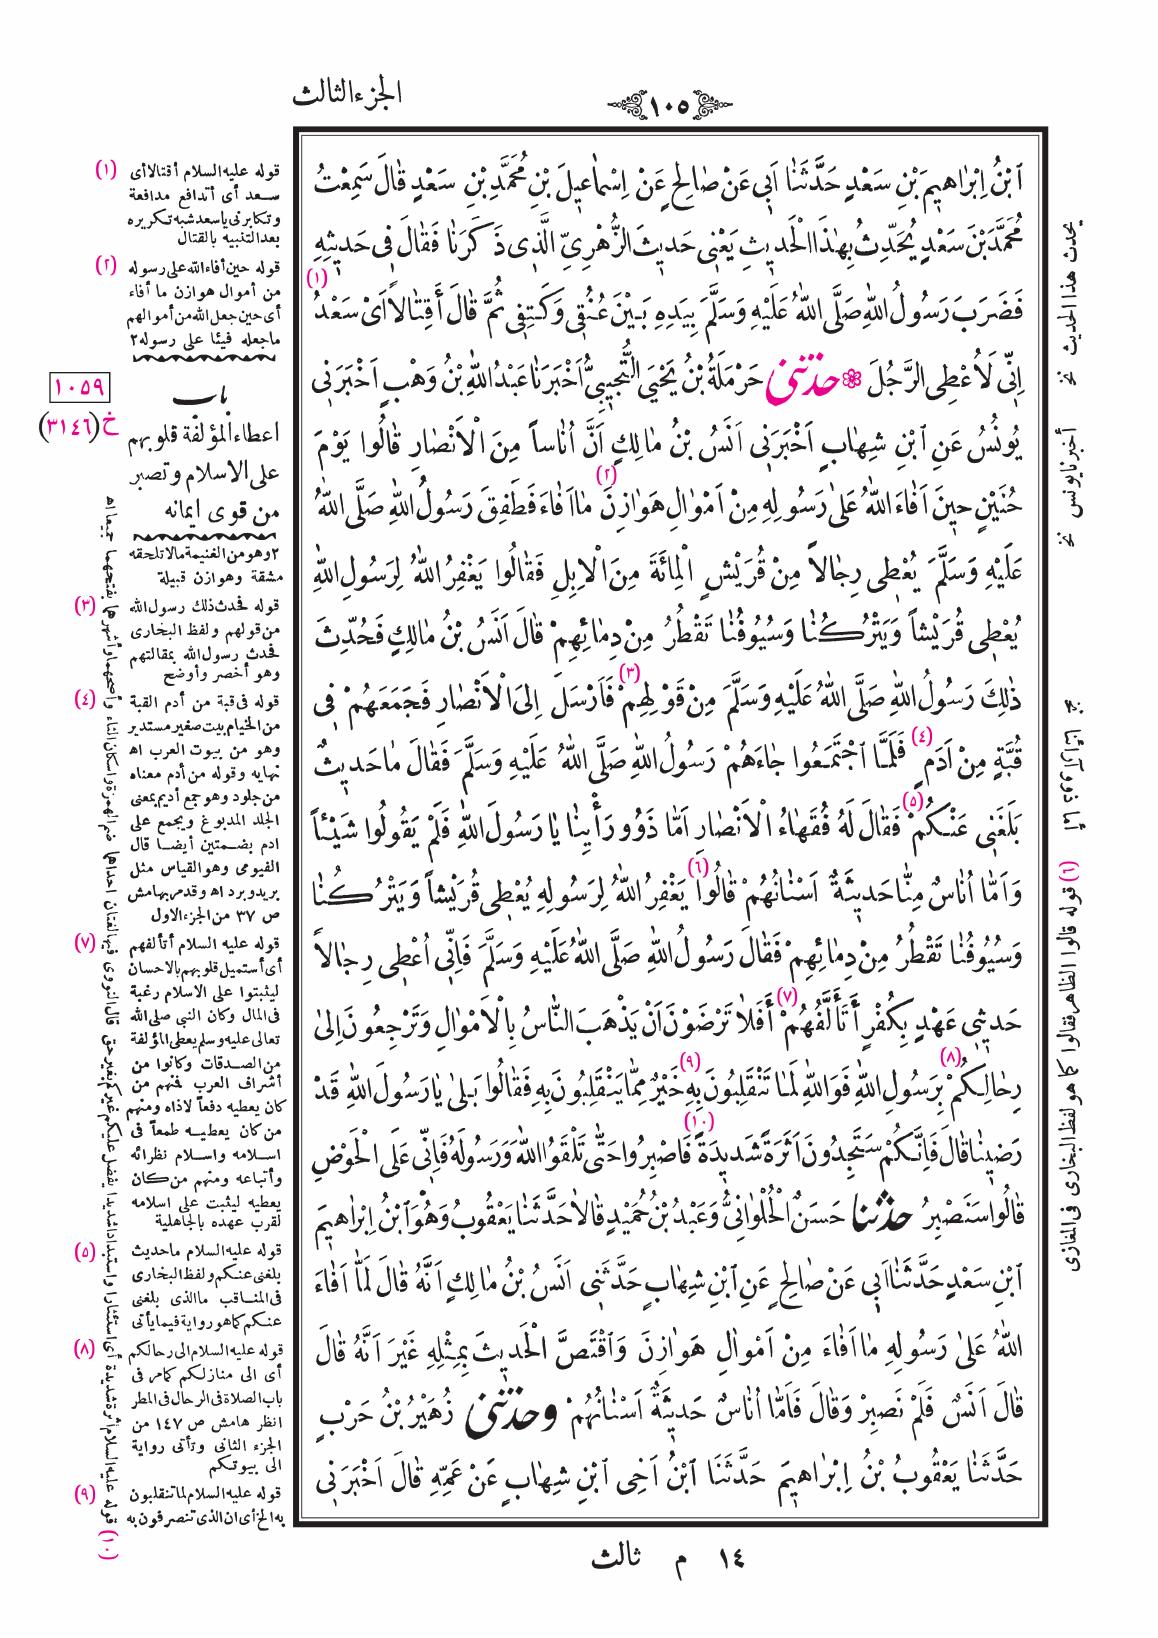 ١٠٥
الجزء الثالث
ٱبْنُ اِبْرٰاهِيمَ بْنِ سَعْدٍ حَدَّثَنٰا اَبِى عَنْ صٰالِحٍ عَنْ اِسْمٰاعِيلَ بْنِ مُحَمَّدِ بْنِ سَعْدٍ قٰالَ سَمِعْتُ
مُحَمَّدَ بْنَ سَعْدٍ يُحَدِّثُ بِهٰذَا الْحَدِيثِ يَعْنِى حَدِيثَ الزُّهْرِىِّ الَّذِى ذَكَرْنٰا فَقٰالَ فِى حَدِيثِهِ
فَضَرَبَ رَسُولُ اللّٰهِ صَلَّى اللّٰهُ عَلَيْهِ وَسَلَّمَ بِيَدِهِ بَيْنَ عُنُقِى وَكَتِفِى ثُمَّ قٰالَ أَقِتٰالاً (١) اَىْ سَعْدُ
اِنِّى لَاُعْطِى الرَّجُلَ ❁ حَدَّثَنِى حَرْمَلَةُ بْنُ يَحْيَى التُّجِيبِىُّ اَخْبَرَنٰا عَبْدُ اللّٰهِ بْنُ وَهْبٍ اَخْبَرَنِى
يُونُسُ عَنِ ٱبْنِ شِهٰابٍ اَخْبَرَنِى اَنَسُ بْنُ مٰالِكٍ اَنَّ اُنٰاساً مِنَ الْاَنْصٰارِ قٰالُوا يَوْمَ
حُنَيْنٍ حِينَ اَفٰاءَ اللّٰهُ عَلىٰ رَسُولِهِ مِنْ اَمْوٰالِ هَوٰازِنَ (٢) مٰا اَفٰاءَ فَطَفِقَ رَسُولُ اللّٰهِ صَلَّى اللّٰهُ
عَلَيْهِ وَسَلَّمَ يُعْطِى رِجٰالاً مِنْ قُرَيْشٍ الْمِائَةَ مِنَ الْاِبِلِ فَقٰالُوا يَغْفِرُ اللّٰهُ لِرَسُولِ اللّٰهِ
يُعْطِى قُرَيْشاً وَيَتْرُكُنٰا وَسُيُوفُنٰا تَقْطُرُ مِنْ دِمٰائِهِمْ قٰالَ اَنَسُ بْنُ مٰالِكٍ فَحُدِّثَ
ذٰلِكَ رَسُولُ اللّٰهِ صَلَّى اللّٰهُ عَلَيْهِ وَسَلَّمَ مِنْ قَوْلِهِمْ (٣) فَاَرْسَلَ اِلَى الْاَنْصٰارِ فَجَمَعَهُمْ فِى
قُبَّةٍ مِنْ اَدَمٍ (٤) فَلَمَّا ٱجْتَمَعُوا جٰاءَهُمْ رَسُولُ اللّٰهِ صَلَّى اللّٰهُ عَلَيْهِ وَسَلَّمَ فَقٰالَ مٰا حَدِيثٌ
بَلَغَنِى عَنْكُمْ (٥) فَقٰالَ لَهُ فُقَهٰاءُ الْاَنْصٰارِ اَمّٰا ذَوُو رَأْيِنٰا يٰا رَسُولَ اللّٰهِ فَلَمْ يَقُولُوا شَيْئاً
وَاَمّٰا اُنٰاسٌ مِنّٰا حَدِيثَةٌ اَسْنٰانُهُمْ قٰالُوا (٦) يَغْفِرُ اللّٰهُ لِرَسُولِهِ يُعْطِى قُرَيْشاً وَيَتْرُكُنٰا
وَسُيُوفُنٰا تَقْطُرُ مِنْ دِمٰائِهِمْ فَقٰالَ رَسُولُ اللّٰهِ صَلَّى اللّٰهُ عَلَيْهِ وَسَلَّمَ فَاِنِّى اُعْطِى رِجٰالاً
حَدِيثِى عَهْدٍ بِكُفْرٍ أَتَأَلَّفُهُمْ (٧) أَفَلاٰ تَرْضَوْنَ اَنْ يَذْهَبَ النّٰاسُ بِالْاَمْوٰالِ وَتَرْجِعُونَ اِلىٰ
رِحٰالِكُمْ (٨) بِرَسُولِ اللّٰهِ فَوَاللّٰهِ لَمٰا تَنْقَلِبُونَ بِهِ (٩) خَيْرٌ مِمّٰا يَنْقَلِبُونَ بِهِ فَقٰالُوا بَلىٰ يٰا رَسُولَ اللّٰهِ قَدْ
رَضِينٰا قٰالَ فَاِنَّكُمْ سَتَجِدُونَ اَثَرَةً شَدِيدَةً (١٠) فَاصْبِرُوا حَتّٰى تَلْقَوُا اللّٰهَ وَرَسُولَهُ فَاِنِّى عَلَى الْحَوْضِ
قٰالُوا سَنَصْبِرُ حَدَّثَنَا حَسَنٌ الْحُلْوٰانِىُّ وَعَبْدُ بْنُ حُمَيْدٍ قٰالاٰ حَدَّثَنٰا يَعْقُوبُ وَهُوَ ٱبْنُ اِبْرٰاهِيمَ
ٱبْنِ سَعْدٍ حَدَّثَنٰا اَبِى عَنْ صٰالِحٍ عَنِ ٱبْنِ شِهٰابٍ حَدَّثَنِى اَنَسُ بْنُ مٰالِكٍ اَنَّهُ قٰالَ لَمّٰا اَفٰاءَ
اللّٰهُ عَلىٰ رَسُولِهِ مٰا اَفٰاءَ مِنْ اَمْوٰالِ هَوٰازِنَ وَٱقْتَصَّ الْحَدِيثَ بِمِثْلِهِ غَيْرَ اَنَّهُ قٰالَ
قٰالَ اَنَسٌ فَلَمْ نَصْبِرْ وَقٰالَ فَاَمّٰا اُنٰاسٌ حَدِيثَةٌ اَسْنٰانُهُمْ وَحَدَّثَنِى زُهَيْرُ بْنُ حَرْبٍ
حَدَّثَنٰا يَعْقُوبُ بْنُ اِبْرٰاهِيمَ حَدَّثَنَا ٱبْنُ اَخِى ٱبْنِ شِهٰابٍ عَنْ عَمِّهِ قٰالَ اَخْبَرَنِى
١٤ م ثالث
(١) قوله عليه السلام أقتالا أى
سعد أى أتدافع مدافعة
وتكابرنى ياسعد شبه تكريره
بعد التنبيه بالقتال
(٢) قوله حين أفاء الله على رسوله
من أموال هوازن ما أفاء
أى حين جعل الله من أموالهم
ماجعله فيئا على رسوله ٢
١٠٥٩
خ (٣١٤٦)
باب
اعطاء المؤلفة قلوبهم
على الاسلام وتصبر
من قوى ايمانه
٢ وهو من الغنيمة مالا تلحقه
مشقة وهوازن قبيلة
(٣) قوله فحدث ذلك رسول الله
من قولهم ولفظ البخارى
فحدث رسول الله بمقالتهم
وهو أخصر وأوضح
(٤) قوله فى قبة من أدم القبة
من الخيام بيت صغير مستدير
وهو من بيوت العرب اه
نهايه وقوله من أدم معناه
من جلود وهو جمع أديم بمعنى
الجلد المدبوغ ويجمع على
ادم بضمتين أيضا قال
الفيومى وهو القياس مثل
بريد وبرد اه وقد مر بهامش
ص ٣٧ من الجزء الاول
(٧) قوله عليه السلام أتألفهم
أى أستميل قلوبهم بالاحسان
ليثبتوا على الاسلام رغبة
فى المال وكان النبى صلى الله
تعالى عليه وسلم يعطى المؤلفة
من الصدقات وكانوا من
أشراف العرب فمنهم من
كان يعطيه دفعاً لاذاه ومنهم
من كان يعطيه طمعاً فى
اسلامه واسلام نظرائه
وأتباعه ومنهم من كان
يعطيه ليثبت على اسلامه
لقرب عهده بالجاهلية
(٥) قوله عليه السلام ماحديث
بلغنى عنكم ولفظ البخارى
فى المناقب ما الذى بلغنى
عنكم كما هو رواية فيما يأتى
(٨) قوله عليه السلام الى رحالكم
أى الى منازلكم كما مر فى
باب الصلاة فى الرحال فى المطر
انظر هامش ص ١٤٧ من
الجزء الثانى وتأتى رواية
الى بيوتكم
(٩) قوله عليه السلام لما تنقلبون
به الخ أى ان الذى تنصرفون به
(١٠) قوله عليه السلام اثرة شديدة أى استئثارا واستبدادا شديدا يفضل عليكم غيركم بغير حق قال النووى فيها لغتان احداهما ضم الهمزة واسكان الثاء وأصحهما وأشهرهما بفتحهما جميعا اه
يحدث هذا الحديث نخ
أخبرنا يونس نخ
(٦) قوله قالوا الظاهر فقالوا كما هو لفظ البخارى فى المغازى